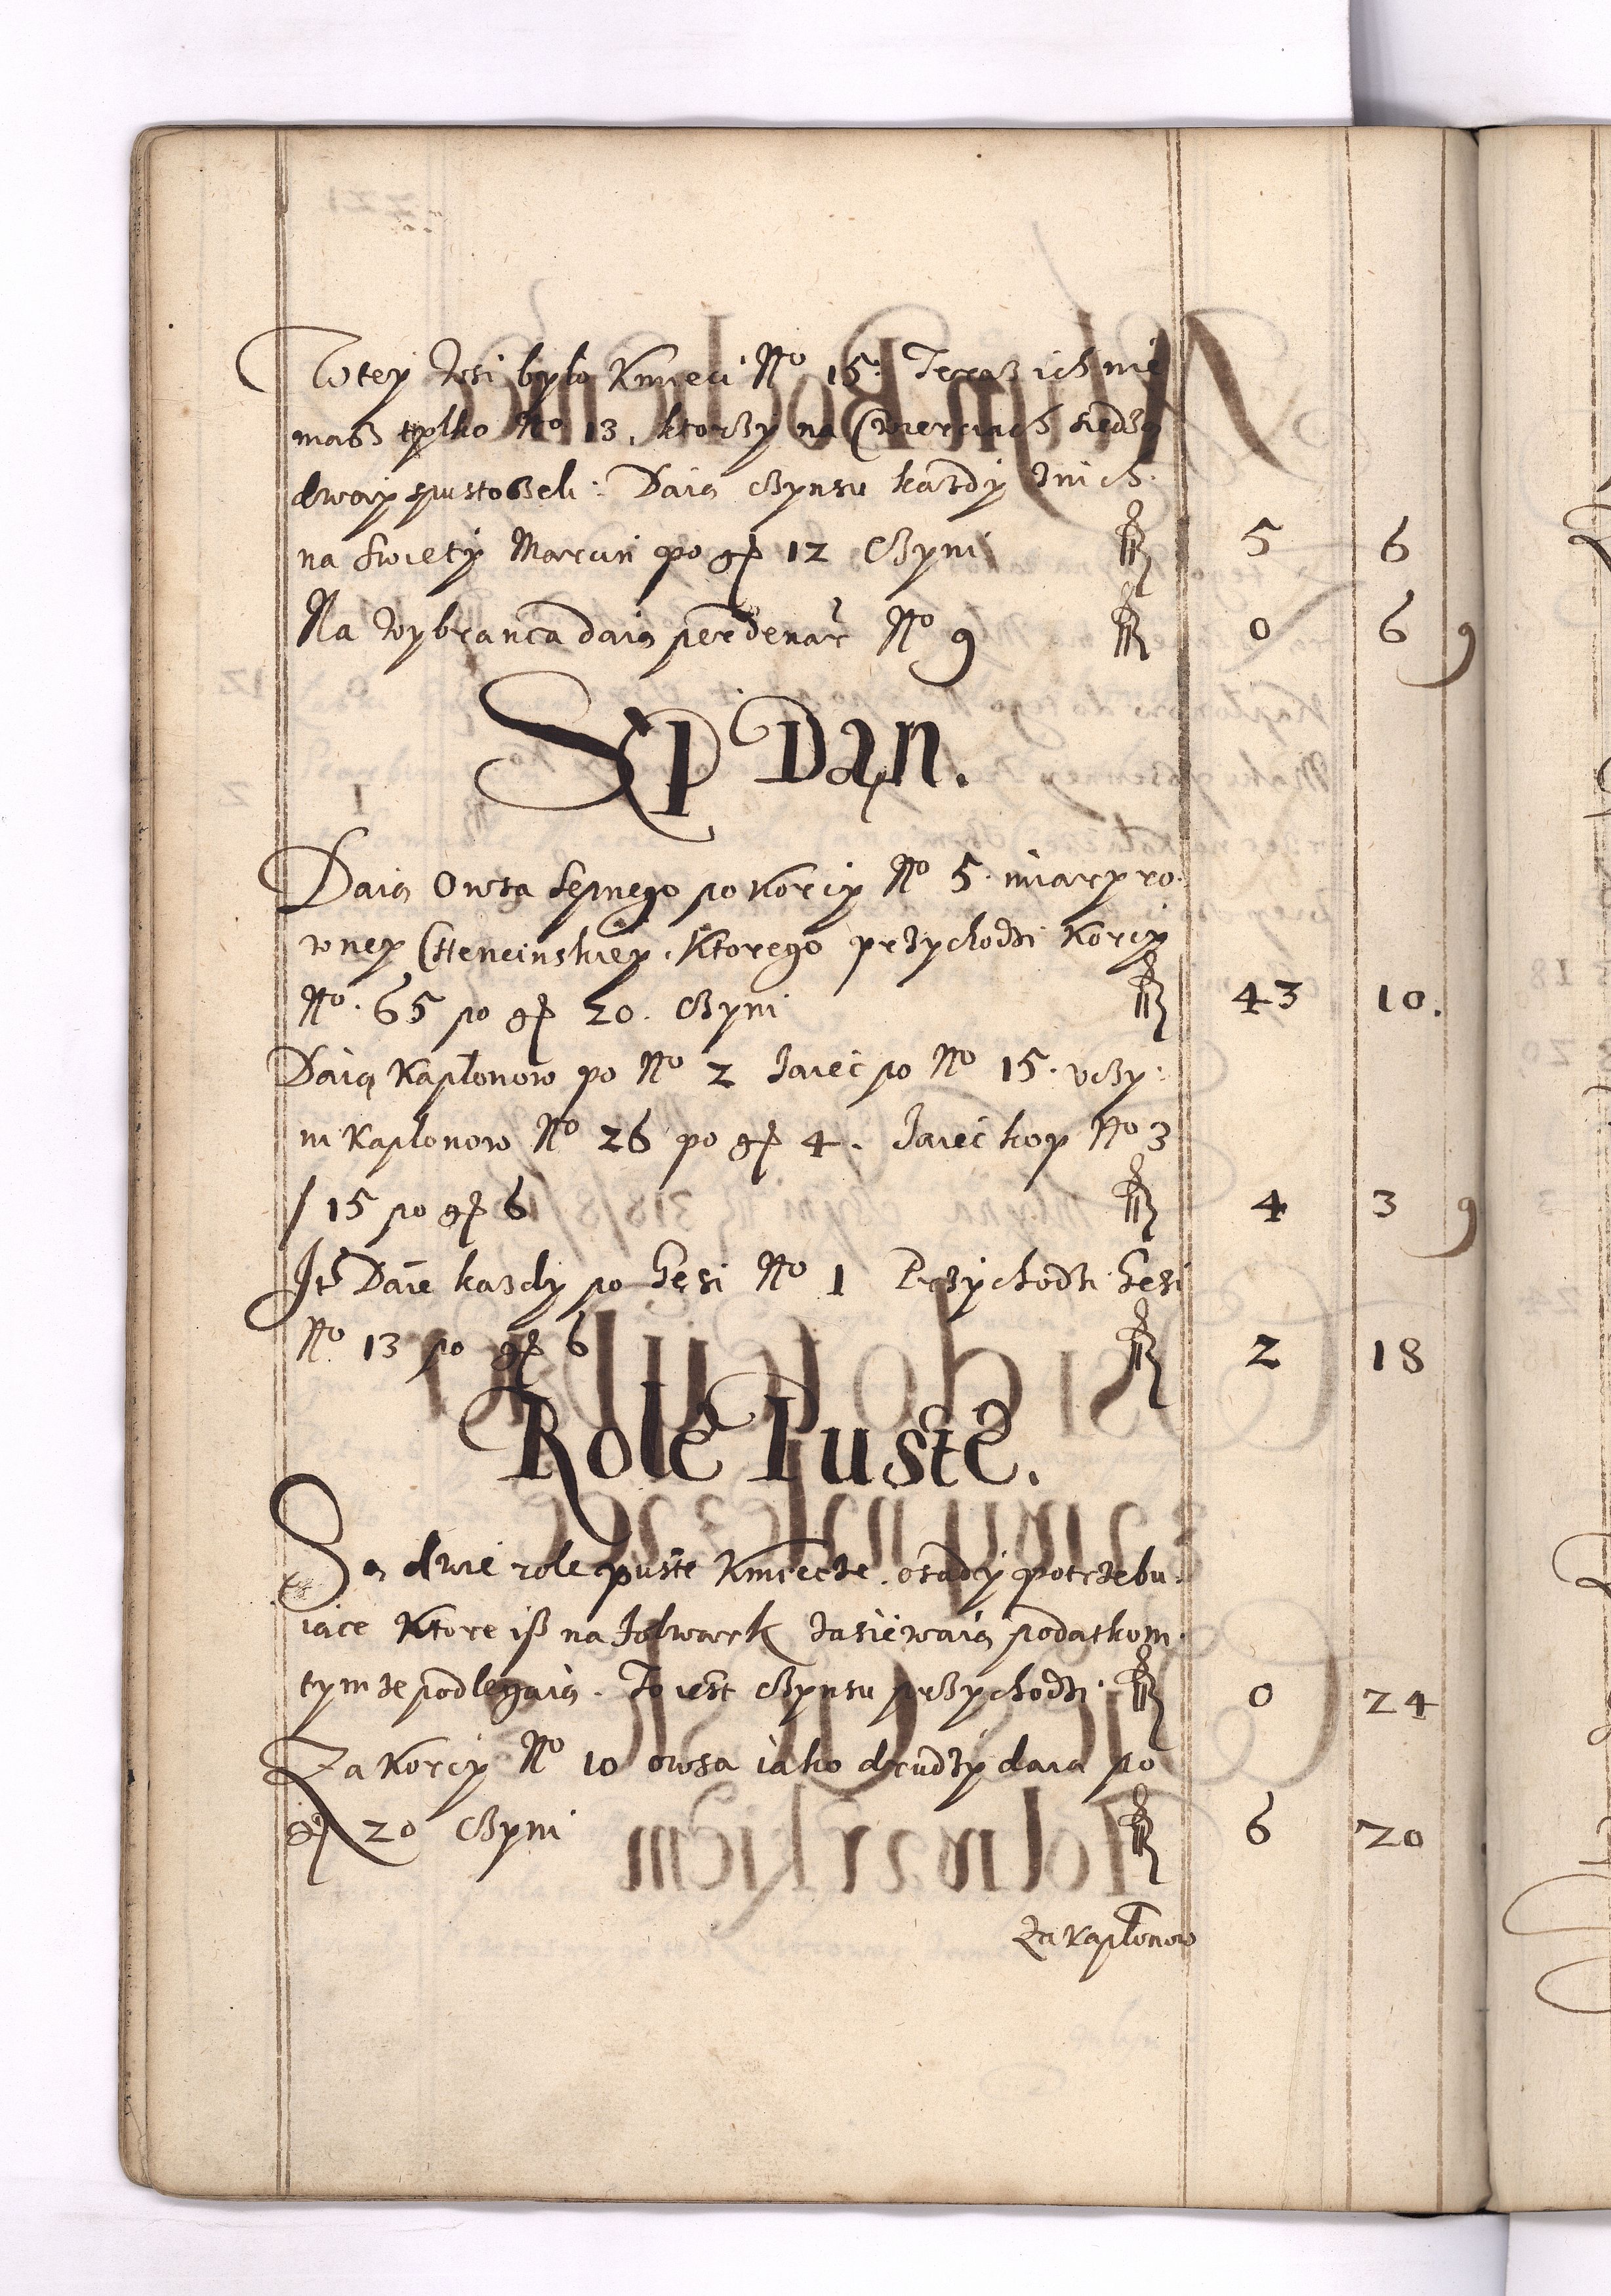 W tey wsi było Kmieci No 15. Teraz ich nie
masz tylko No 13. ktorzy na Cwierciach siedzą
dway spustoszeli. Daią czynsu każdy z nich
na Swięty Marcin po gr 12 czyni fl 5 6
Na wybranca daią per denar No 9 fl 0 6 9
Sp Dan.
Daią Owsa sepnego po Korcy No 5. miary ro-
wney Chencinskiey. Ktorego przychodzi Korcy
No. 65 po gr 20. czyni fl 43 10.
Daią Kapłonow po No 2 Jaiec po No 15. vczy-
ni Kapłonow No 26 po gr 4. Jaiec kop No 3
/ 15 po gr 6 fl 4 3 9
Jt Daie każdy po Gęsi No 1 Przychodzi Gęsi
No 13 po gr 6 fl 2 18
Role Puste.
Są dwie role puste Kmiecze. osady potrzebu-
iące Ktore isz na folwark zasiewaią podatkom
tymze podlegaią. To iest czynsu przychodzi fl 0 24
Za Korcy No 10 owsa iako drudzy daią po
gr 20 czyni fl 6 20
Za Kapłonow